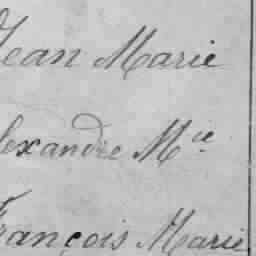 Jean Marie
lexandre M.ie
François Marie